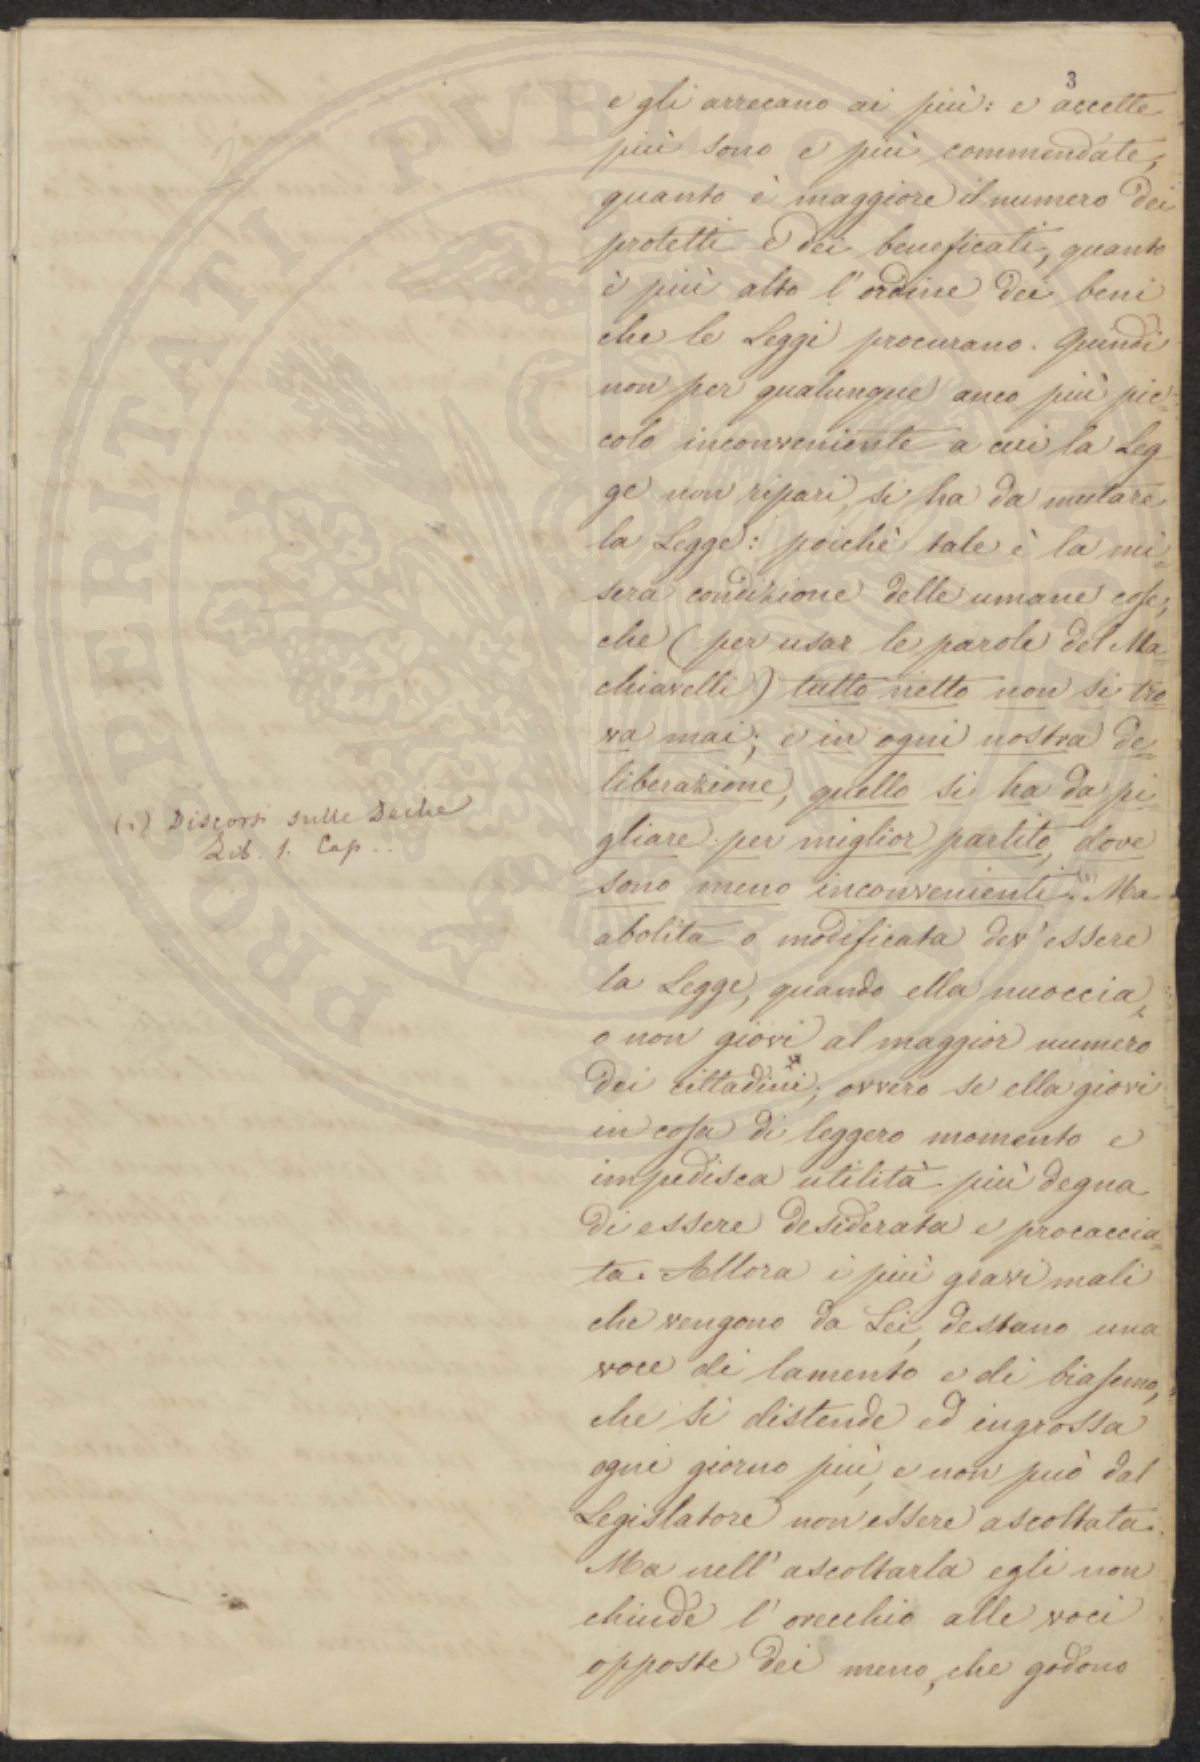 3
e gli arrecano ai più: e accette
più sono e più commendate,
quanto è maggiore il numero dei
protetti e dei beneficati, quanto
è più alto l'ordine dei beni
che le Leggi procurano. Quindi
non per qualunque anco più pic=
colo inconveniente a cui la Leg
ge non ripari, si ha da mutare
la Legge: poichè tale è la mi=
sera condizione delle umane cose,
che (per usar le parole del Ma=
chiavelli) tutto netto non si tro
va mai; e in ogni nostra de=
liberazione, quello si ha da pi
gliare per miglior partito, dove
sono meno inconvenienti.(1) Ma
abolita o modificata dev'essere
la Legge, quando ella nuoccia,
o non giovi al maggior numero
dei cittadini; ovvero se ella giovi
in cosa di leggero momento e
impedisca utilità più degna
di essere desiderata e procaccia=
ta. Allora i più gravi mali
che vengono da Lei, destano una
voce di lamento e di biasimo,
che si distende ed ingrossa
ogni giorno più, e non può dal
Legislatore non essere ascoltata.
Ma nell'ascoltarla egli non
chiude l'orecchio alle voci
opposte dei meno, che godono
(1) Discorsi sulle Deche
Lib. 1. Cap..
PROPERITATI PVBLICAE